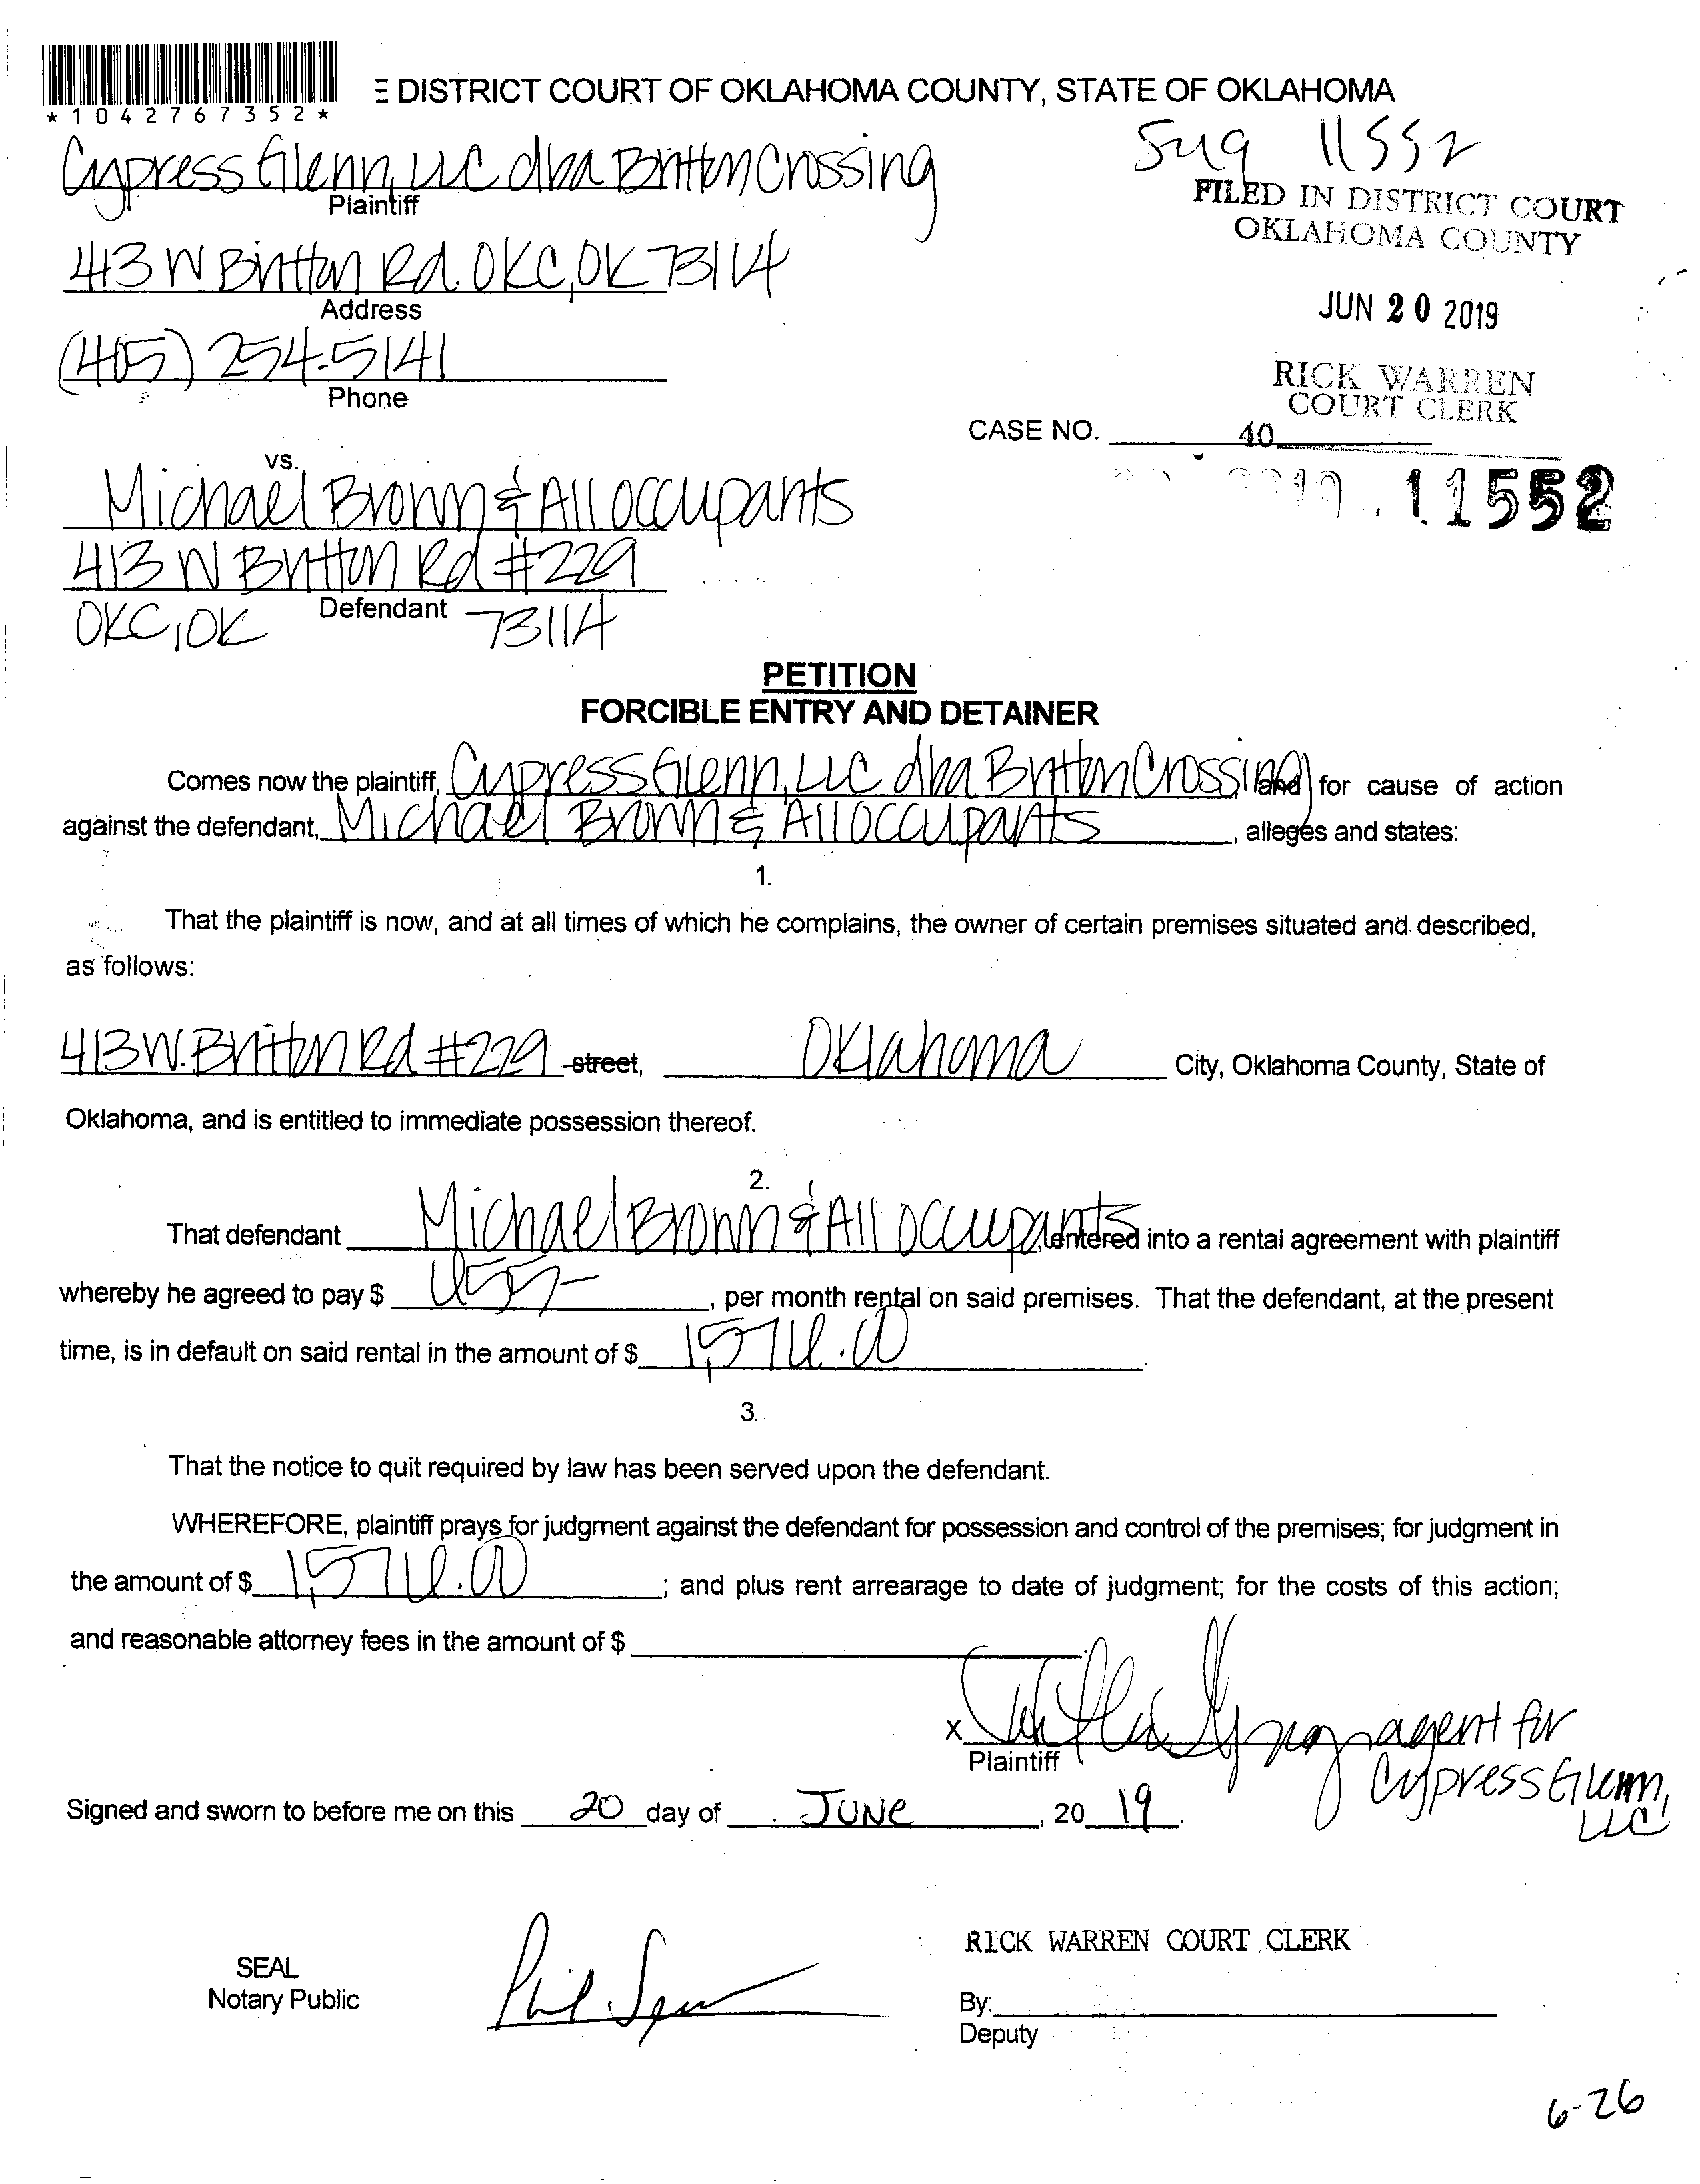 *1042767352*
E DISTRICT COURT OF OKLAHOMA COUNTY, STATE OF OKLAHOMA
11552
Cypress Glenn, LLC dba Britton Crossing
Plaintiff
FILED IN DISTRICT COURT
OKLAHOMA COUNTY
413 W Britton Rd. OKC, OK 73114
Address
JUN 20 2019
(405) 254-5141
Phone
RICK WARREN
COURT CLERK
CASE NO.
40
vs.
Michael Brown & All occupants
11552
413 W Britton Rd #229
Defendant
OKC, OK 73114
PETITION
FORCIBLE ENTRY AND DETAINER
Comes now the plaintiff, Cypress Glenn, LLC dba Britton Crossing and for cause of action
against the defendant, Michael Brown & All occupants, alleges and states:
1.
That the plaintiff is now, and at all times of which he complains, the owner of certain premises situated and described,
as follows:
413 W. Britton Rd #229 street, Oklahoma City, Oklahoma County, State of
Oklahoma, and is entitled to immediate possession thereof.
2.
That defendant Michael Brown & All occupants entered into a rental agreement with plaintiff
whereby he agreed to pay $ , per month rental on said premises. That the defendant, at the present
time, is in default on said rental in the amount of $ 1,576.00.
3.
That the notice to quit required by law has been served upon the defendant.
WHEREFORE, plaintiff prays for judgment against the defendant for possession and control of the premises; for judgment in
the amount of $ 1,576.00; and plus rent arrearage to date of judgment; for the costs of this action;
and reasonable attorney fees in the amount of $
x agent for
Plaintiff
Cypress Glenn,
LLC
Signed and sworn to before me on this 20 day of JUNE, 20 19.
RICK WARREN COURT CLERK
SEAL
Notary Public
By:
Deputy
6-26